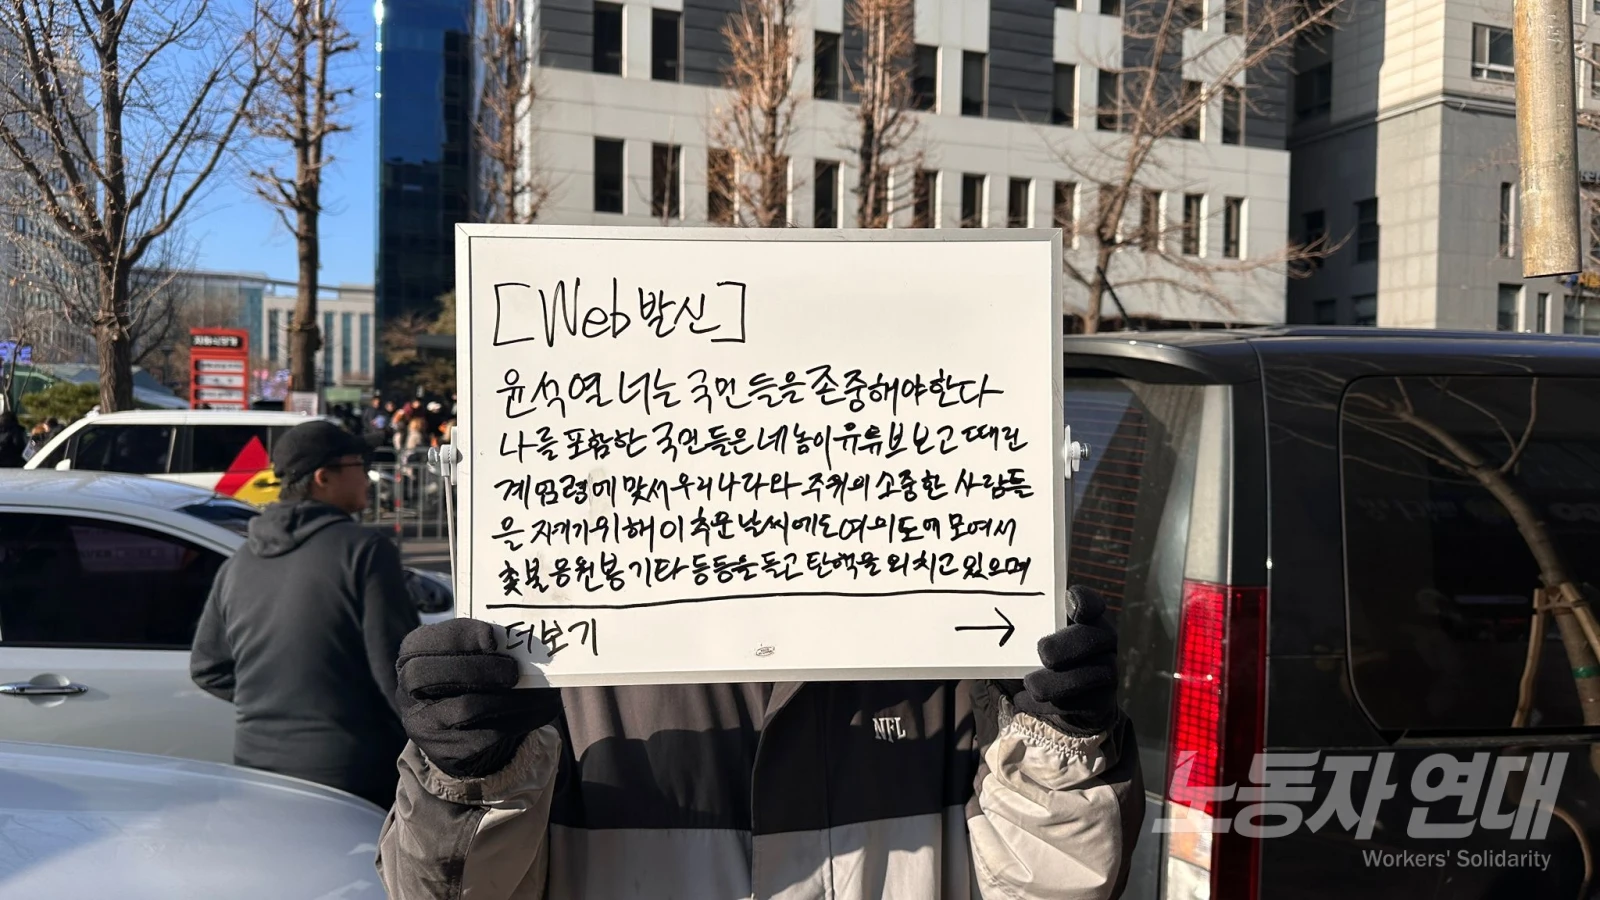 [Web발신]
윤석열 너는 국민들을 존중해야한다
나를 포함한 국민들은 네놈이 유튜브보고 때린
계엄령에 맞서 우리나라와 주위의 소중한 사람들
을 지키기위해 이 추운날씨에도 여의도에 모여서
촛불 응원봉 기타 등등을 들고 탄핵을 외치고 있으며
더보기 →
NFL
노동자 연대
Workers' Solidarity